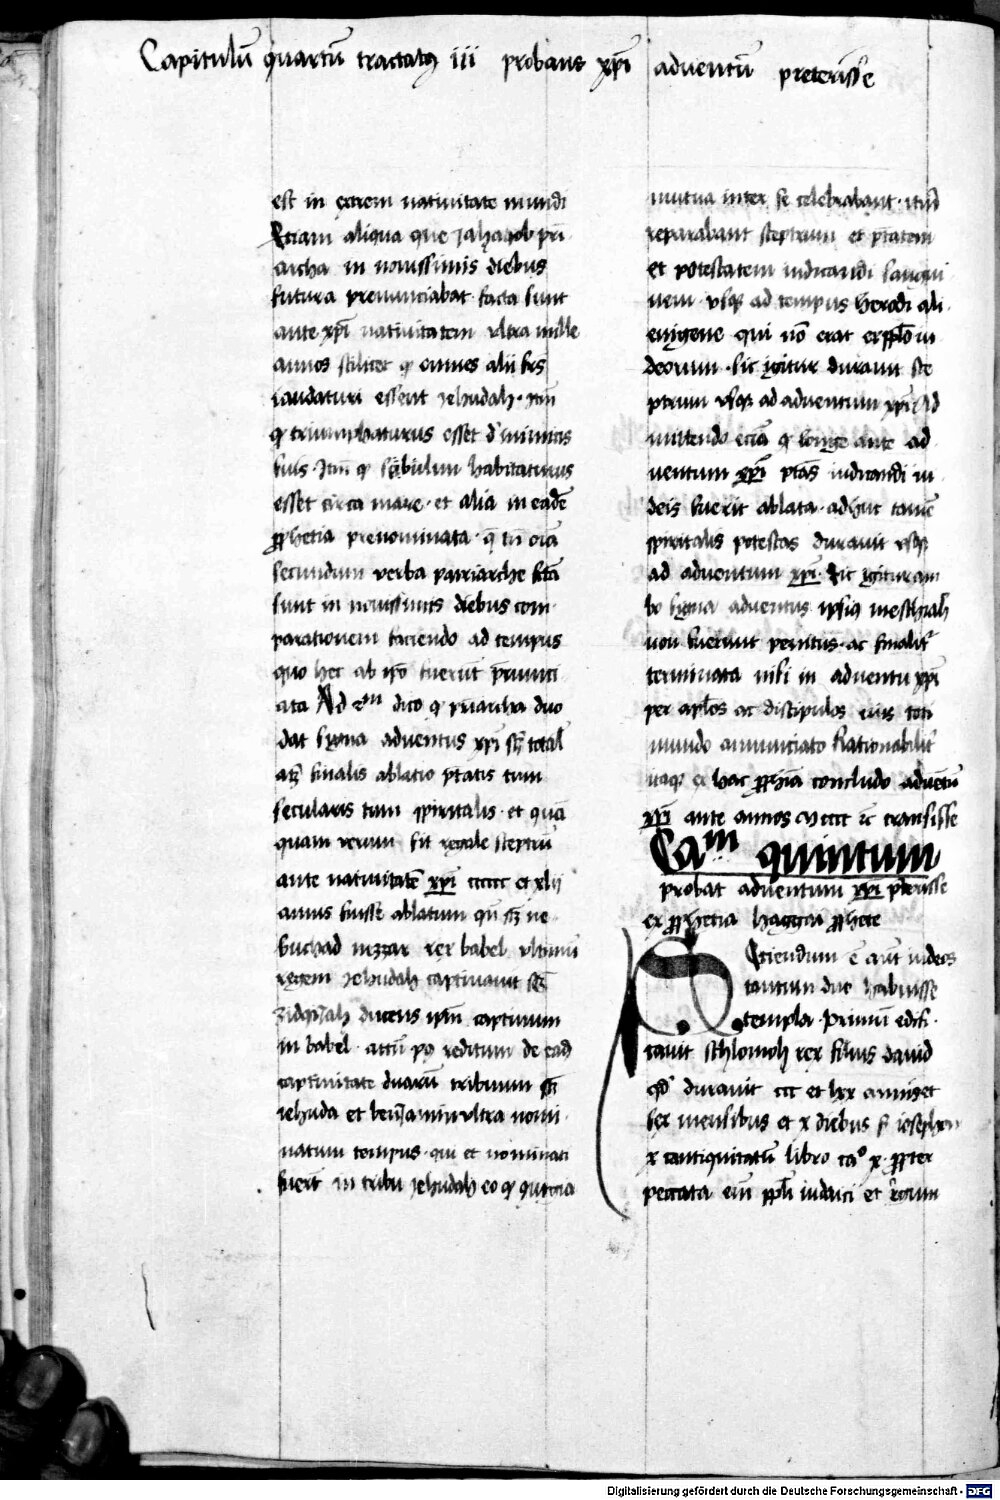 Capitulū quartū tractatꝫ iii probans xp̄i adventū preteriisse
est in extrem nativitate mundi
Etiam aliqua que Jahacob pri
archa in novissimis diebus
futura prenunciabat facta sunt
ante xp̄i nativitatem ultra mille
annos scilicet ꝙ omnes alii frēs
laudaturi essent Jehudah· Itm̄
ꝙ triumphaturus esset d' inimicis
suis· Itm̄ ꝙ habitaturus
esset circa mare· et alia in eadē
ꝓphetia prenominata· q̄ tn̄ oīa
secundum verba patriarche fctā
sunt in novissimis diebus com
parationem faciendo ad tempus
quo hec ab ip̄o fuerūt p̄nunci
ata Ad 2m dico ꝙ duo
dat signa adventus xp̄i sꝫ total'
atꝫ finalis ablatio p̄tatis tum
secularis tum spiritalis· et quā
quam verum sit regale sceptrū
ante nativitatē xp̄i ccccc et xlij
annis fuisse ablatum qn̄ sꝫ ne
buchad nezzar rex babel ultimū
regem Jehudah captivavit sꝫ
zidqijah ducens ip̄m captivum
in babel· attn̄ pꝰ reditum de eadē
captivitate duarū tribuum sꝫ
iehuda et benJamin ultra nomi
natum tempus· qui et nominati
fuerūt in tribu Jehudah eo ꝙ
mutua inter se celebrabant· itm̄
reparabant sceptrum et p̄tatem
et potestatem iudicandi sangui
nem· usqꝫ ad tempus herodi ali
enigene qui nō erat ex ppl̄o iu
deorum· sic igitur duravit sce
ptrum usqꝫ ad adventum xp̄i Ad
mittendo eciā ꝙ longe ante ad
ventum xp̄i p̄tās iudicandi iu
deis fuerit ablata· adhuc tamē
spiritalis potestas duravit usqꝫ
ad adventum xp̄i· Sic igitur am
bo signa adventus ipsiꝰ meschiah
non fuerunt penitus· ac finalit'
terminata nisi in adventu xp̄i
per apl̄os ac discipulos eius toti
mundo annunciato Rationabilit'
itaqꝫ ex hac ꝓphīa concludo adventū
xp̄i ante annos Mcccc transisse
Cam quintum
probat adventum xp̄i pt'erisse
ex ꝓphetia haggai ꝓphete
Sciendum ē aūt iudeos
tantum duc habuisse
templa· Primū edifi·
cavit schlomoh rex filius david
qd' duravit ccc et lxx annis et
sex mensibus et x diebus
x antiquitatū libro caº x· ꝓpter
peccata eni ppl̄i iudaici et regum
Digitalisierung gefördert durch die Deutsche Forschungsgemeinschaft - DFG